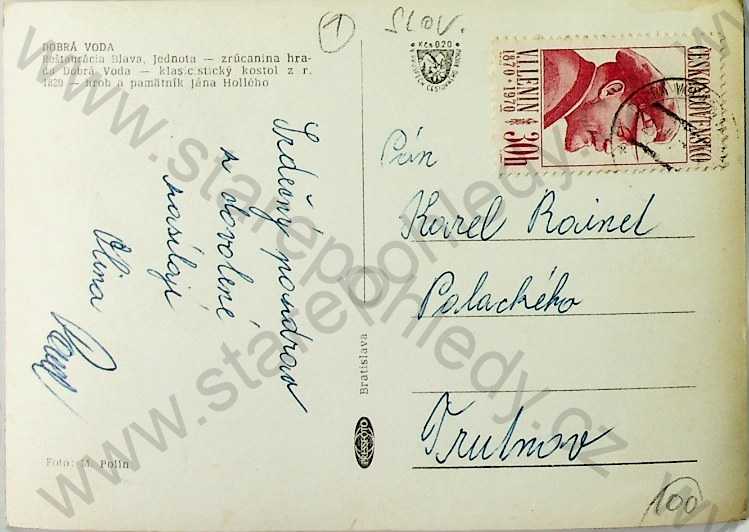 1
SLOV.
DOBRÁ VODA
Reštaurácia Blava, Jednota — zrúcanina hra-
du Dobrá Voda — klasicistický kostol z r.
1820 — hrob a pamätník Jána Hollého
Kčs 0,20
ČESKOSLOVENSKO
V.I. LENIN
1870 • 1970
30h
Srdečný pozdrav
z dovolené
zasílají
Olina
Pán
Karel Rainel
Palackého
Trutnov
Bratislava
PRESSFOTO
Foto: M. Polin
100
www.starepohledy.cz